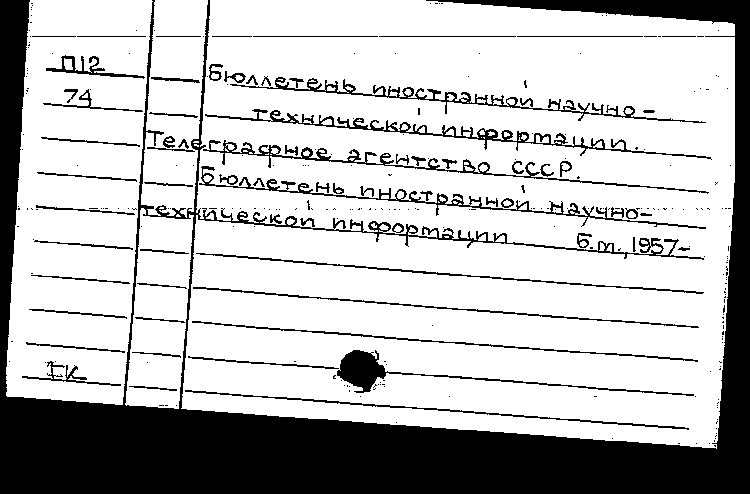 П12
74
Бюллетень иностранной научно-
технической информации.
Телеграфное агентство СССР.
Бюллетень иностранной научно-
технической информации Б.м., 1957-
IK